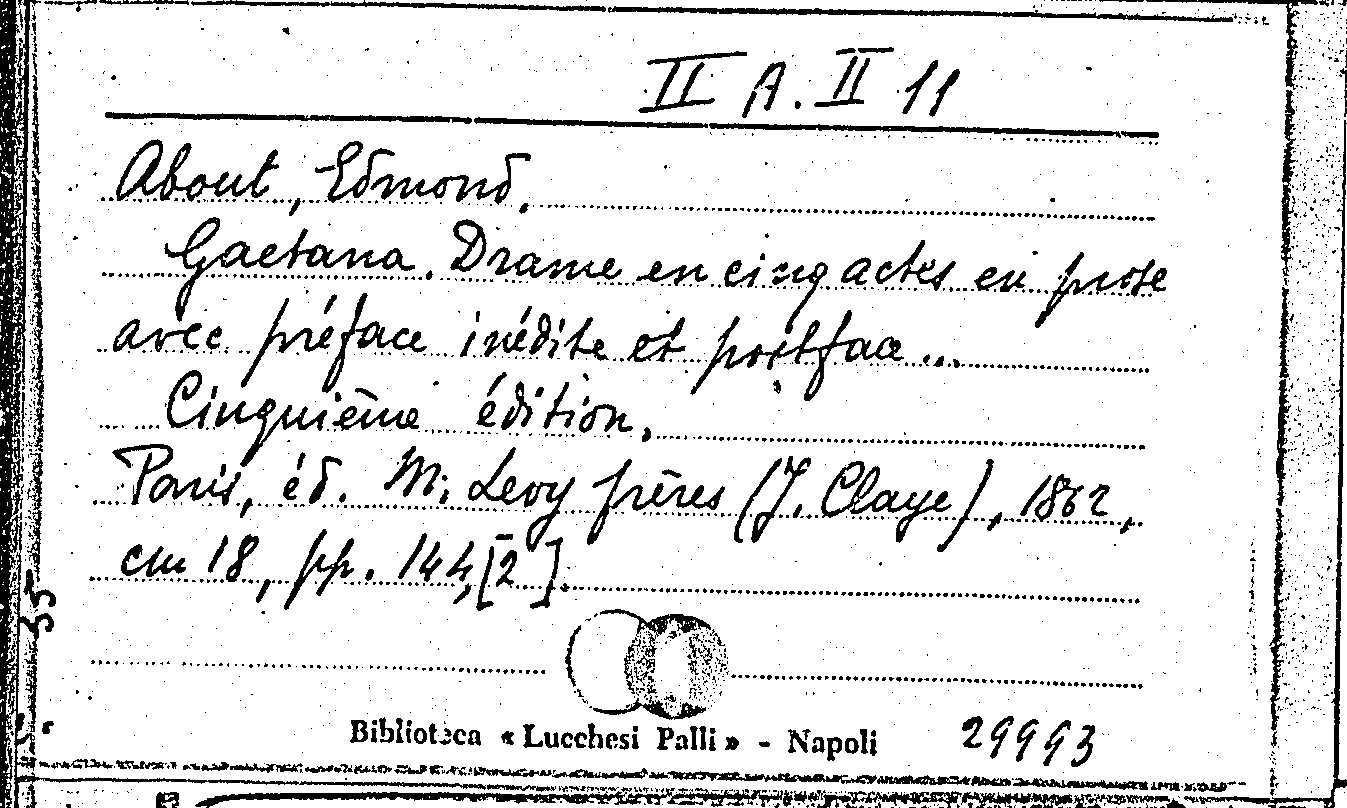 II A. II 11
About, Edmond.
Gaetana. Drame en cinq actes en prose
avec préface inédite et postface...
Cinquième édition.
Paris, éd. M. Levy frères (J. Claye), 1862,
cm 18, pp. 144, [2].
Biblioteca « Lucchesi Palli » - Napoli
29993